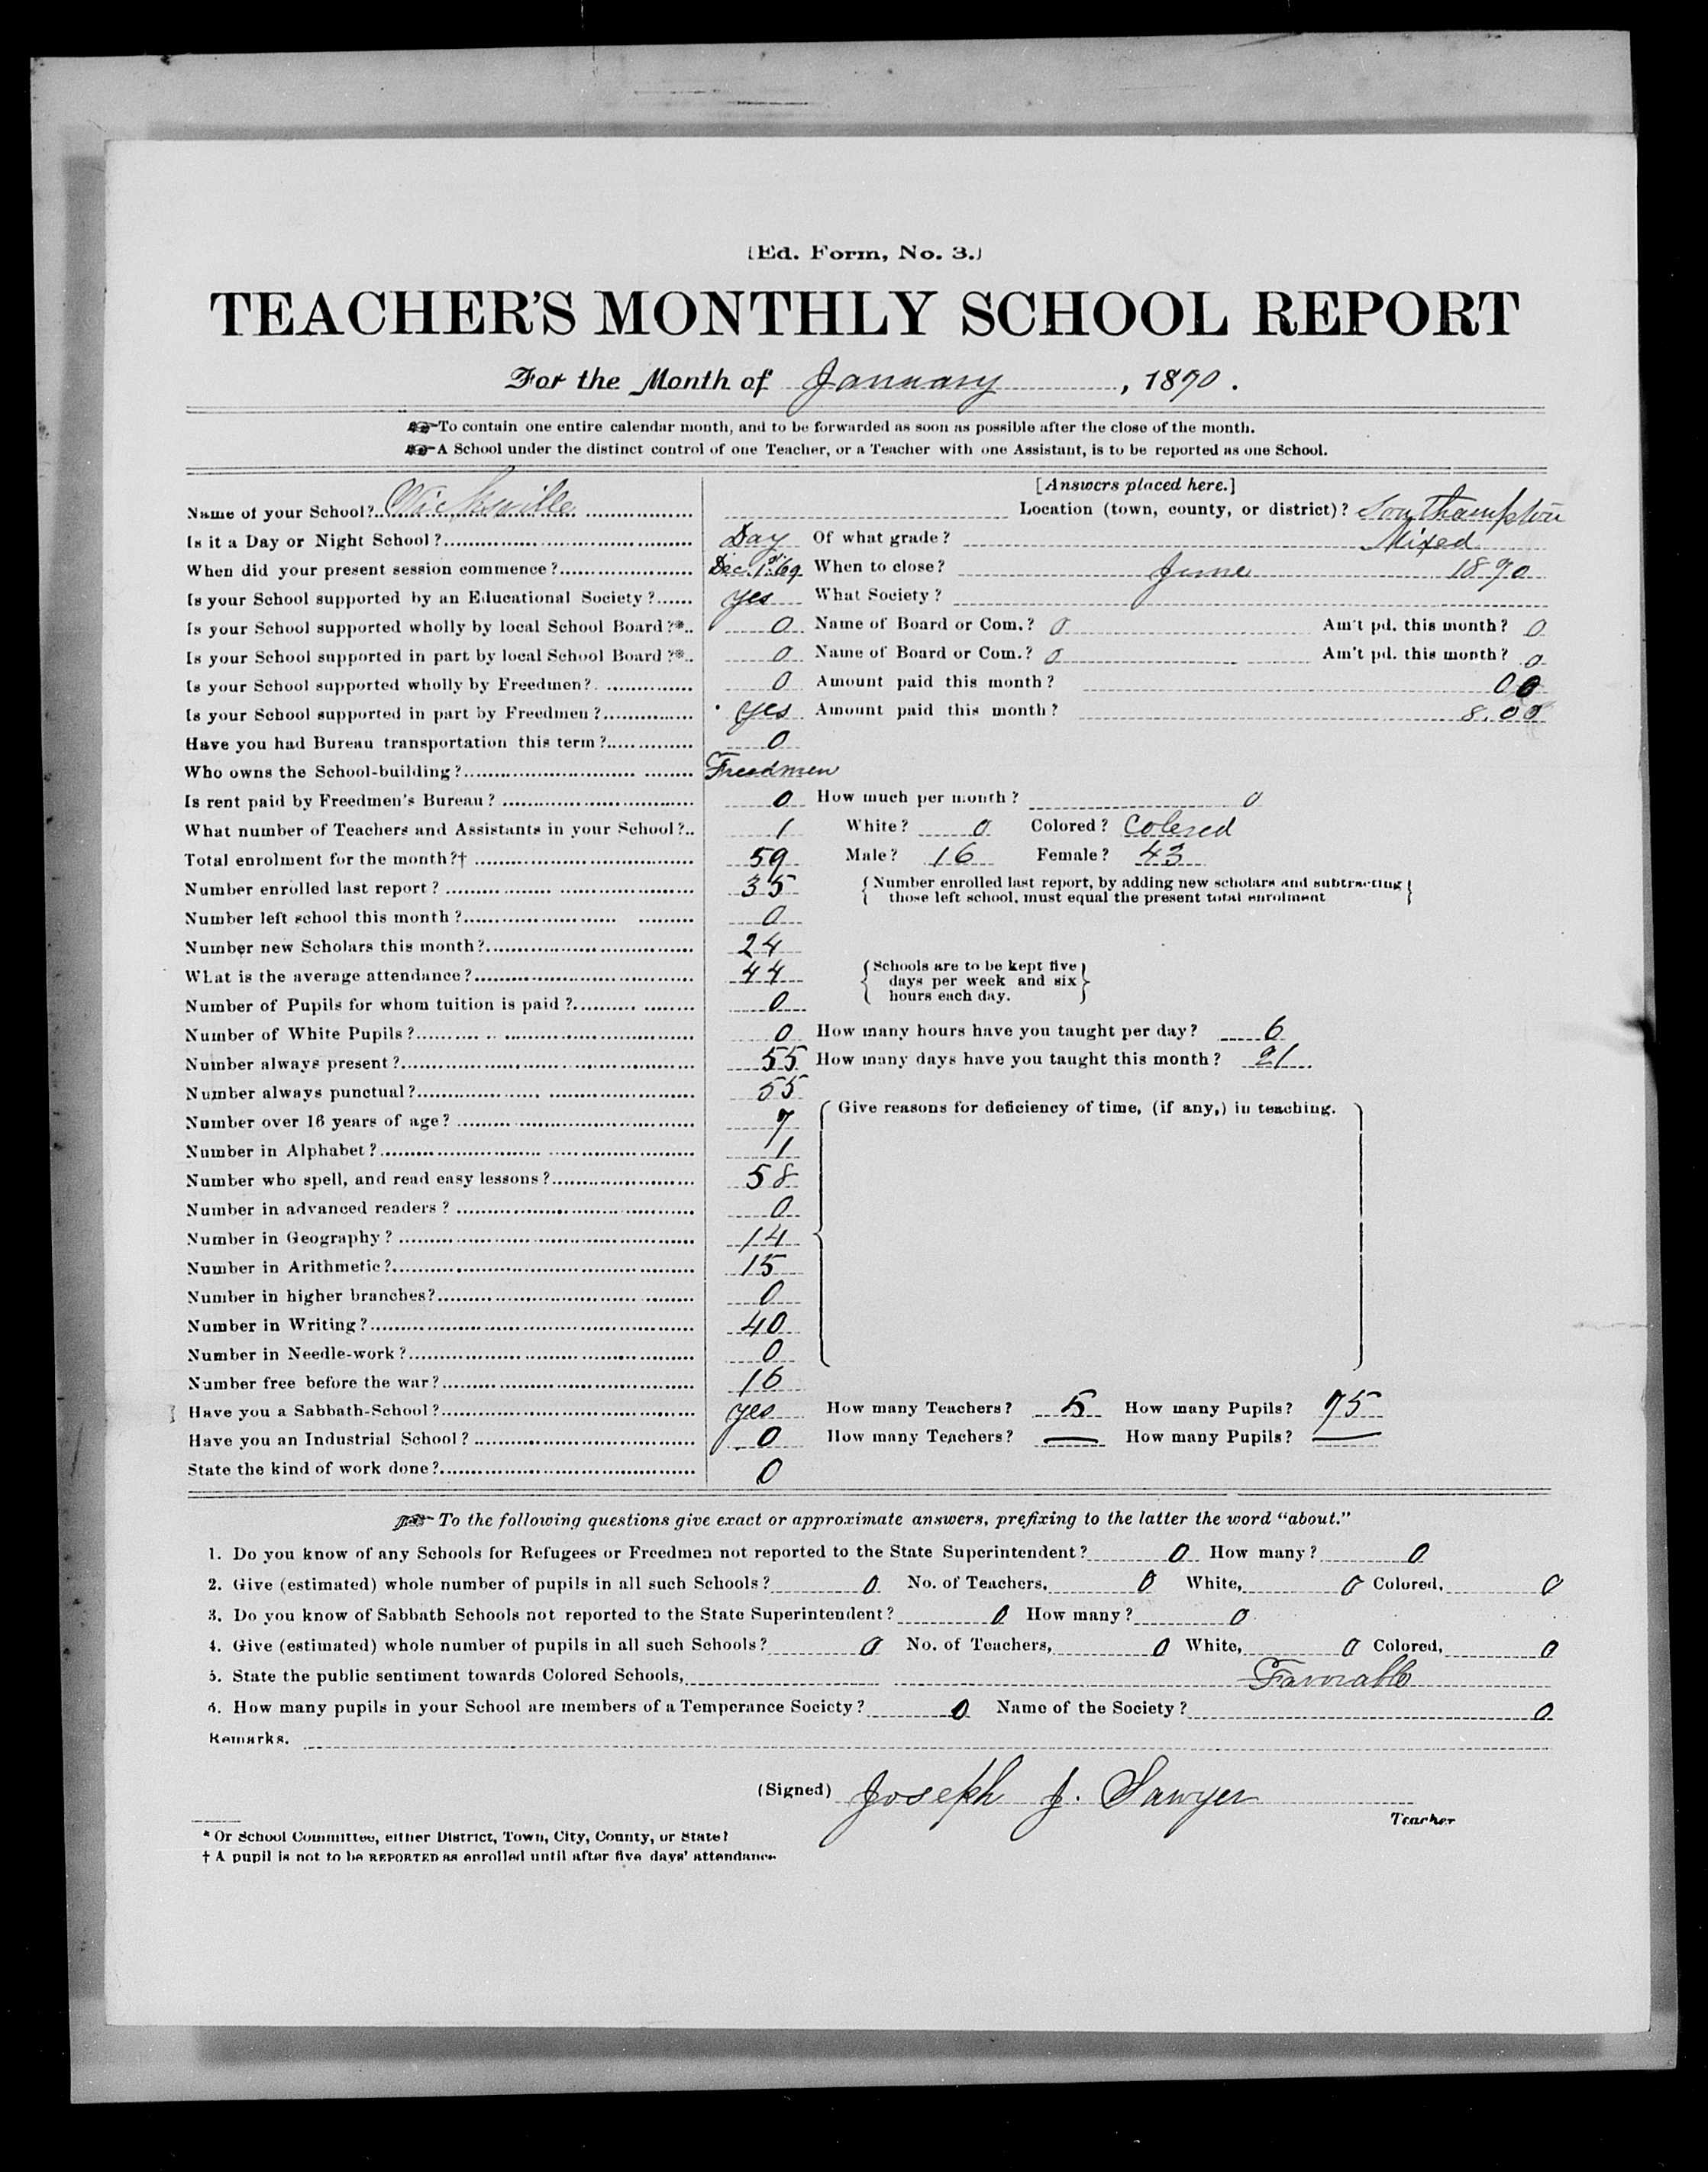 (Ed. Form, No. 3.)
TEACHER'S MONTHLY SCHOOL REPORT
For the Month of January, 1870.
To contain one entire calendar month, and to be forwarded as soon as possible after the close of the month.
A School under the distinct control of one Teacher, or a Teacher with one Assistant, is to be reported as one School.
[Answers placed here.]
Name of your School? Vicksville Location (town, county, or district)? Southampton
Is it a Day or Night School? Day Of what grade? Mixed
When did your present session commence? Dec. 1st 69 When to close? June 1870
Is your School supported by an Educational Society? yes What Society?
Is your School supported wholly by local School Board?* 0 Name of Board or Com.? 0 Am't pd. this month? 0
Is your School supported in part by local School Board?* 0 Name of Board or Com.? 0 Am't pd. this month? 0
Is your School supported wholly by Freedmen? 0 Amount paid this month? 00
Is your School supported in part by Freedmen? yes Amount paid this month? 8.00
Have you had Bureau transportation this term? 0
Who owns the School-building? Freedmen
Is rent paid by Freedmen's Bureau? 0 How much per month? 0
What number of Teachers and Assistants in your School? 1 White? 0 Colored? Colered
Total enrolment for the month?† 59 Male? 16 Female? 43
Number enrolled last report? 35 {Number enrolled last report, by adding new scholars and subtracting
those left school, must equal the present total enrolment}
Number left school this month? 0
Number new Scholars this month? 24
What is the average attendance? 44 {Schools are to be kept five
days per week and six
hours each day.}
Number of Pupils for whom tuition is paid? 0
Number of White Pupils? 0 How many hours have you taught per day? 6
Number always present? 55 How many days have you taught this month? 21
Number always punctual? 55
Give reasons for deficiency of time, (if any,) in teaching.
Number over 16 years of age? 7
Number in Alphabet? 1
Number who spell, and read easy lessons? 58
Number in advanced readers? 0
Number in Geography? 14
Number in Arithmetic? 15
Number in higher branches? 0
Number in Writing? 40
Number in Needle-work? 0
Number free before the war? 16
Have you a Sabbath-School? yes How many Teachers? 5 How many Pupils? 75
Have you an Industrial School? 0 How many Teachers? — How many Pupils? —
State the kind of work done? 0
To the following questions give exact or approximate answers, prefixing to the latter the word "about."
1. Do you know of any Schools for Refugees or Freedmen not reported to the State Superintendent? 0 How many? 0
2. Give (estimated) whole number of pupils in all such Schools? 0 No. of Teachers, 0 White, 0 Colored, 0
3. Do you know of Sabbath Schools not reported to the State Superintendent? 0 How many? 0
4. Give (estimated) whole number of pupils in all such Schools? 0 No. of Teachers, 0 White, 0 Colored, 0
5. State the public sentiment towards Colored Schools, Favorable
6. How many pupils in your School are members of a Temperance Society? 0 Name of the Society? 0
Remarks.
(Signed) Joseph J. Sawyer
Teacher
* Or School Committee, either District, Town, City, County, or State?
† A pupil is not to be REPORTED as enrolled until after five days' attendance